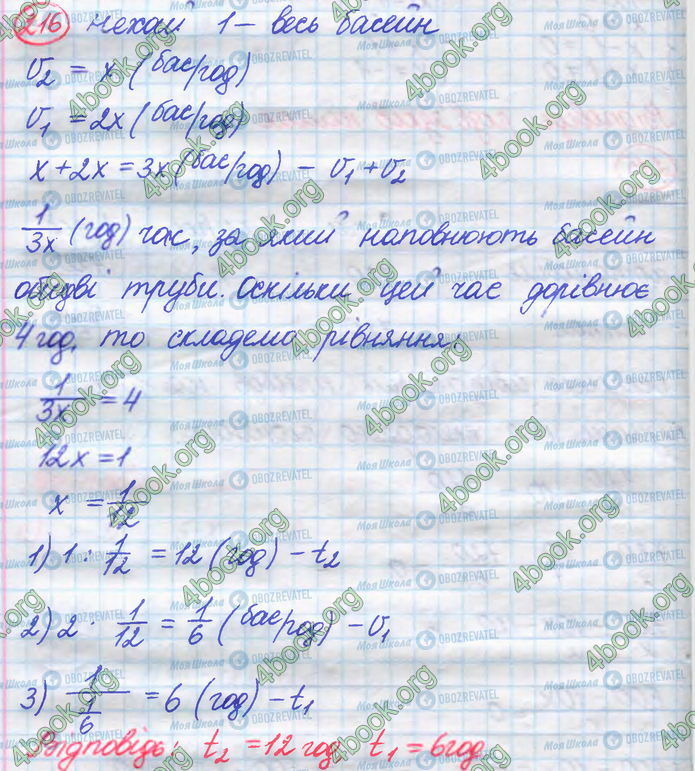 216 Нехай 1 – весь басейн
v₂ = x (бас/год)
v₁ = 2x (бас/год)
x + 2x = 3x (бас/год) – v₁ + v₂
1/3x (год) час, за який наповнюють басейн
обидві труби. Оскільки цей час дорівнює
4 год, то складемо рівняння:
1/3x = 4
12x = 1
x = 1/12
1) 1 : 1/12 = 12 (год) – t₂
2) 2 · 1/12 = 1/6 (бас/год) – v₁
3) 1/(1/6) = 6 (год) – t₁
Відповідь: t₂ = 12 год t₁ = 6 год
4book.org
Моя Школа OBOZREVATEL